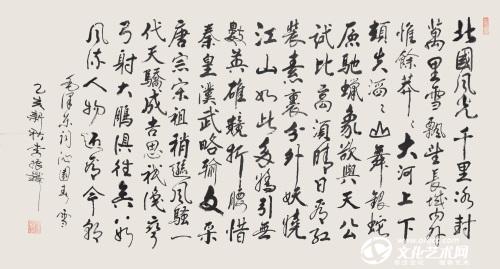 北國風光千里冰封
萬里雪飄望長城內外
惟餘莽〻大河上下
頓失滔〻山舞銀蛇
原馳蠟象欲與天公
試比高須晴日看紅
裝素裹分外妖嬈
江山如此多嬌引無
數英雄競折腰惜
秦皇漢武略輸文采
唐宗宋祖稍遜風騷一
代天驕成吉思祇識彎
弓射大鵬俱往矣數
風流人物還看今朝
毛澤東詞沁園春雪
乙亥新秋李
文化艺术网